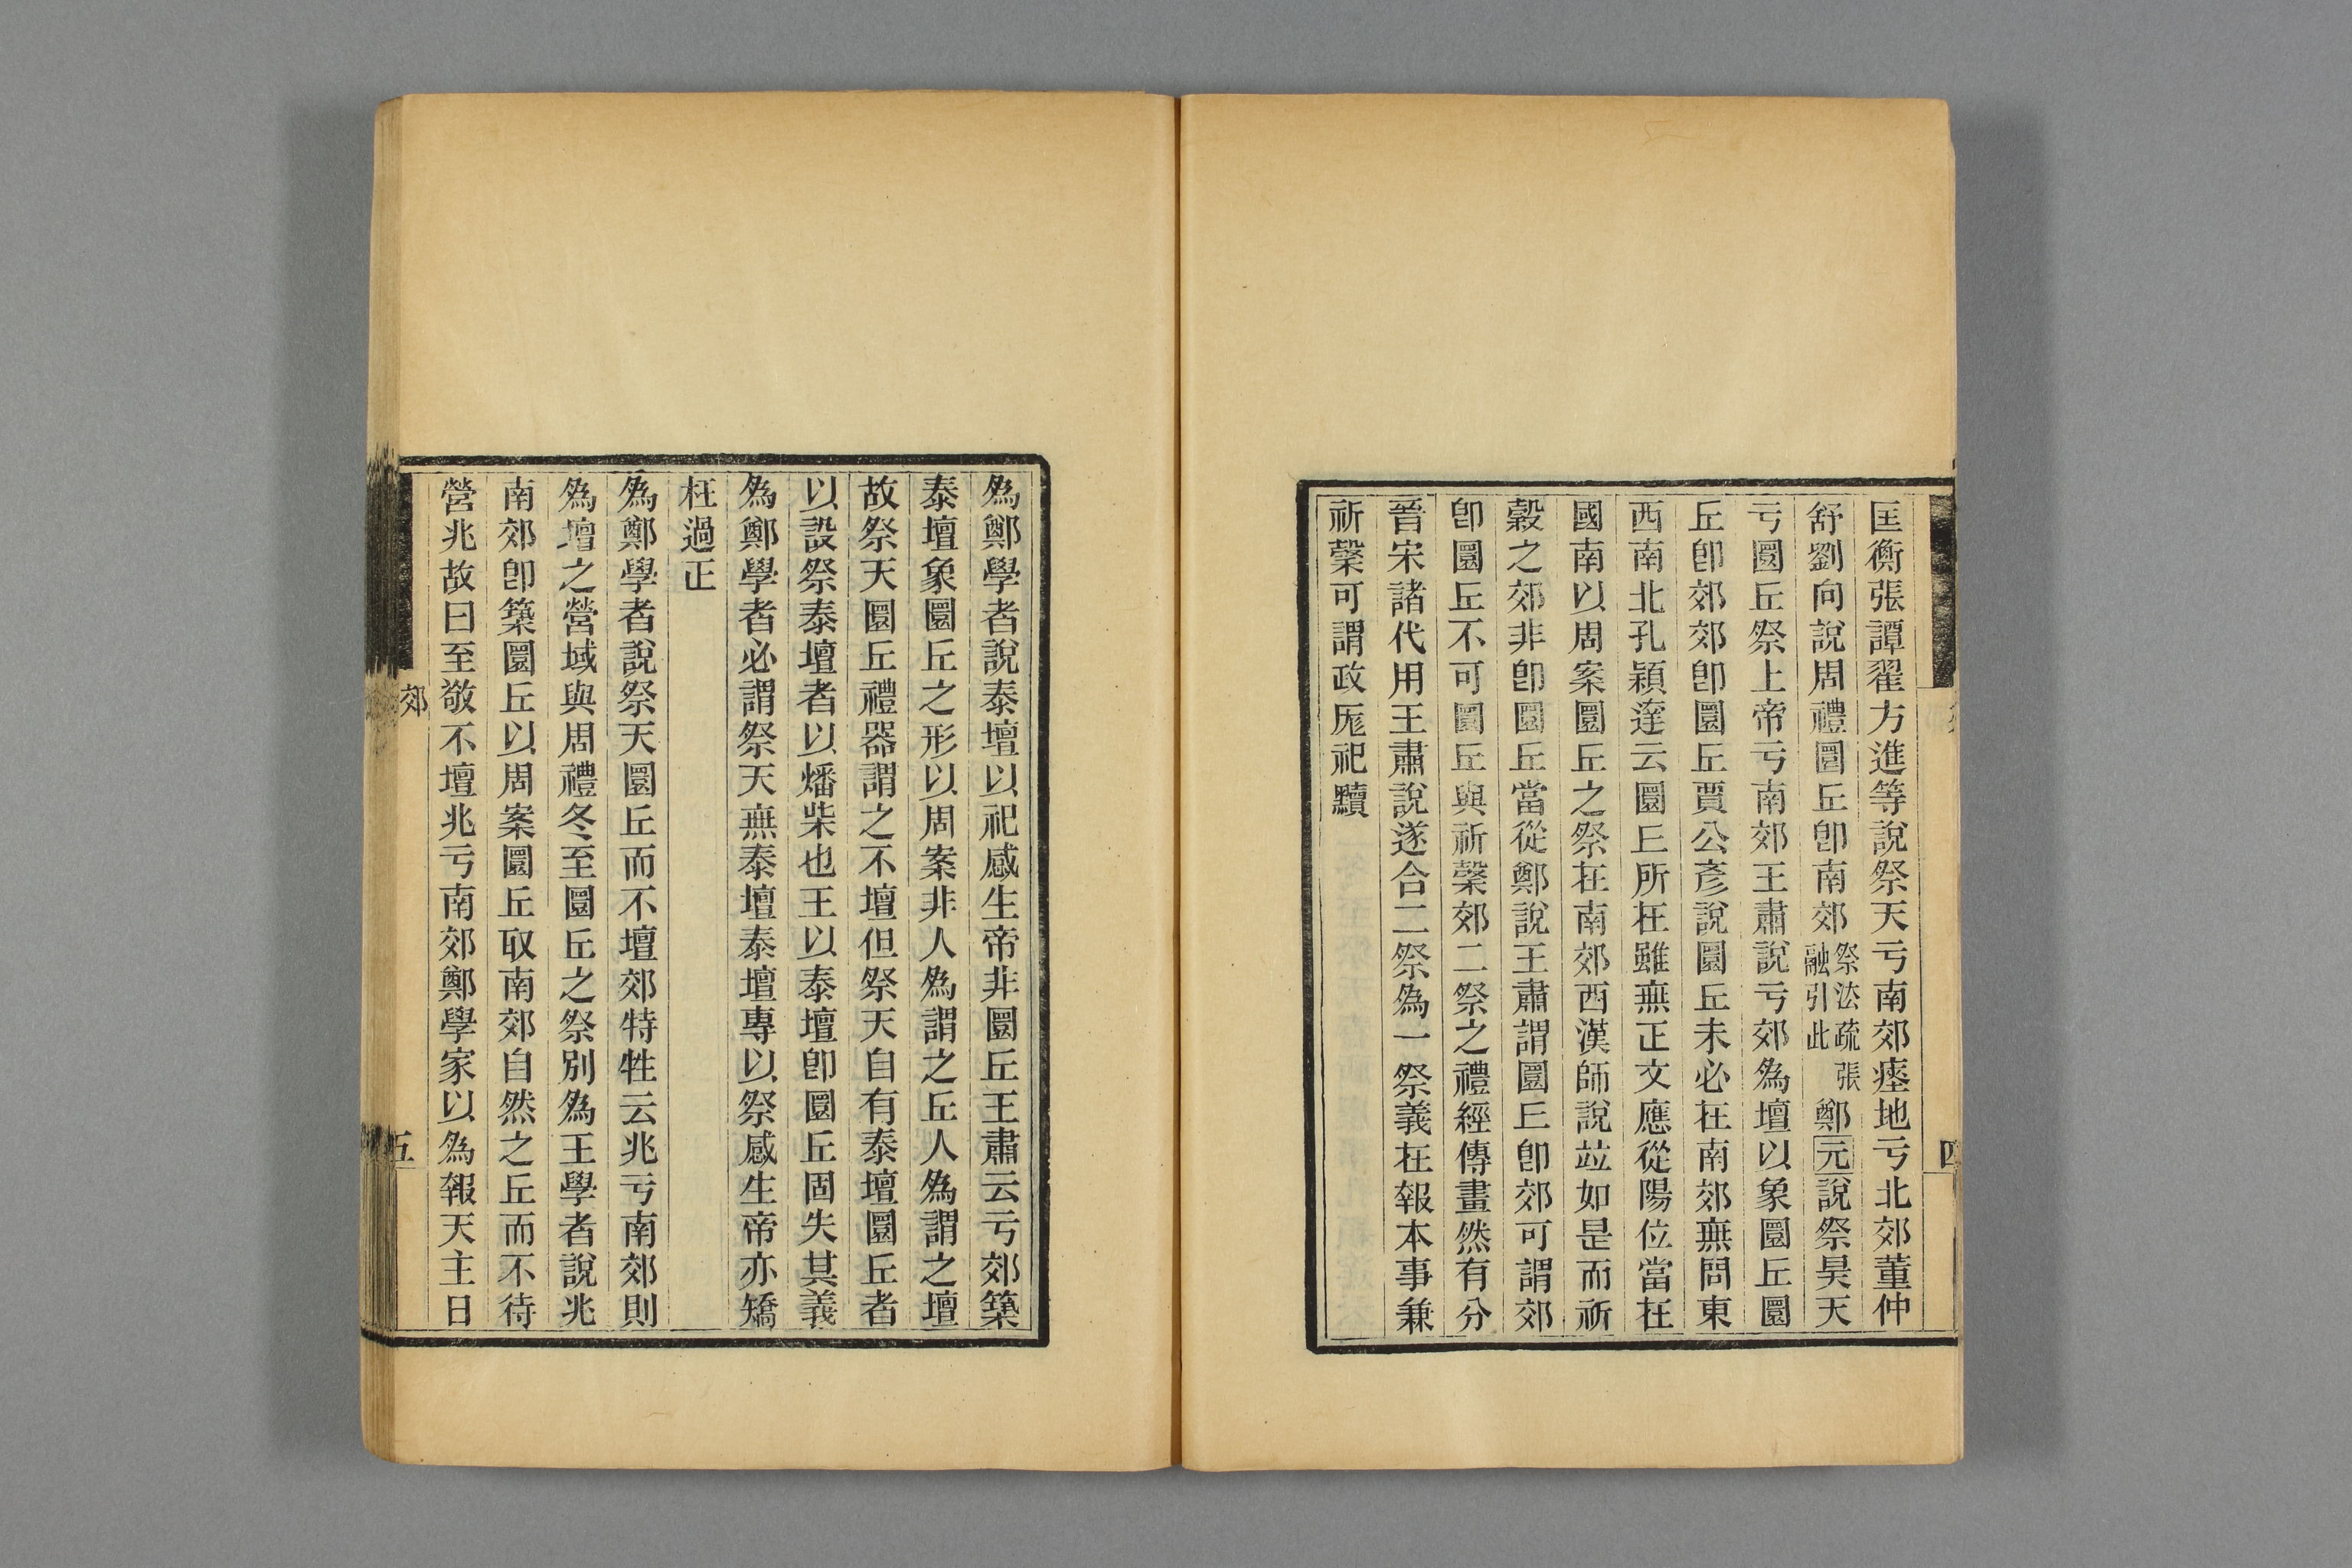 匡衡張譚翟方進等說祭天亏南郊瘞地亏北郊董仲
舒劉向說周禮圜丘卽南郊祭法疏張融引此鄭元說祭昊天
亏圜丘祭上帝亏南郊王肅說亏郊為壇以象圜丘圜
丘卽郊郊卽圜丘賈公彥說圜丘未必在南郊無問東
西南北孔穎達云圜丘所在雖無正文應從陽位當在
國南以周案圜丘之祭在南郊西漢師說竝如是而祈
穀之郊非卽圜丘當從鄭說王肅謂圜丘卽郊可謂郊
卽圜丘不可圜丘與祈穀郊二祭之禮經傳畫然有分
晉宋諸代用王肅說遂合二祭為一祭義在報本事兼
祈穀可謂政厖祀黷
四
為鄭學者說泰壇以祀感生帝非圜丘王肅云亏郊築
泰壇象圜丘之形以周案非人為謂之丘人為謂之壇
故祭天圜丘禮器謂之不壇但祭天自有泰壇圜丘者
以設祭泰壇者以燔柴也王以泰壇卽圜丘固失其義
為鄭學者必謂祭天無泰壇泰壇專以祭感生帝亦矯
枉過正
為鄭學者說祭天圜丘而不壇郊特牲云兆亏南郊則
為壇之營域與周禮冬至圜丘之祭別為王學者說兆
南郊卽築圜丘以周案圜丘取南郊自然之丘而不待
營兆故曰至敬不壇兆亏南郊鄭學家以為報天主日
郊
五